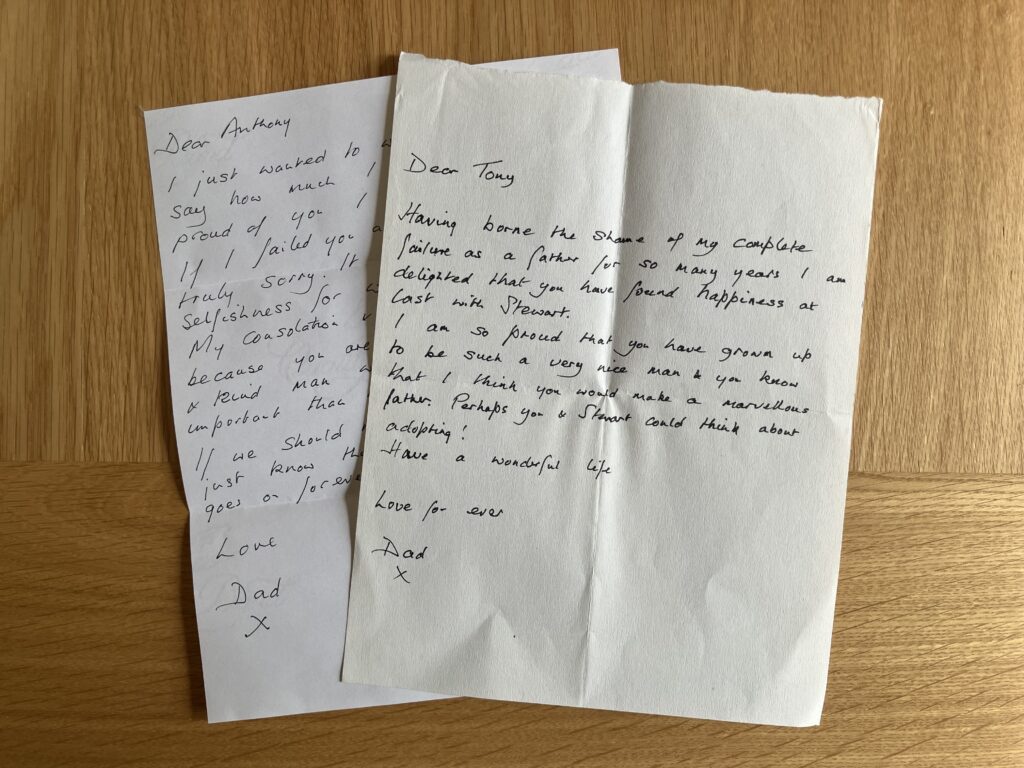 Dear Anthony
I just wanted to w
say how much I
proud of you I
If I failed you a
truly sorry. It
selfishness for w
My consolation
because you are
& kind man
important than
If we should
just know th
goes on for eve
Love
Dad
X
Dear Tony
Having borne the shame of my complete
failure as a father for so many years I am
delighted that you have found happiness at
last with Stewart.
I am so proud that you have grown up
to be such a very nice man & you know
that I think you would make a marvellous
father. Perhaps you & Stewart could think about
adopting!
Have a wonderful life
Love for ever
Dad
X